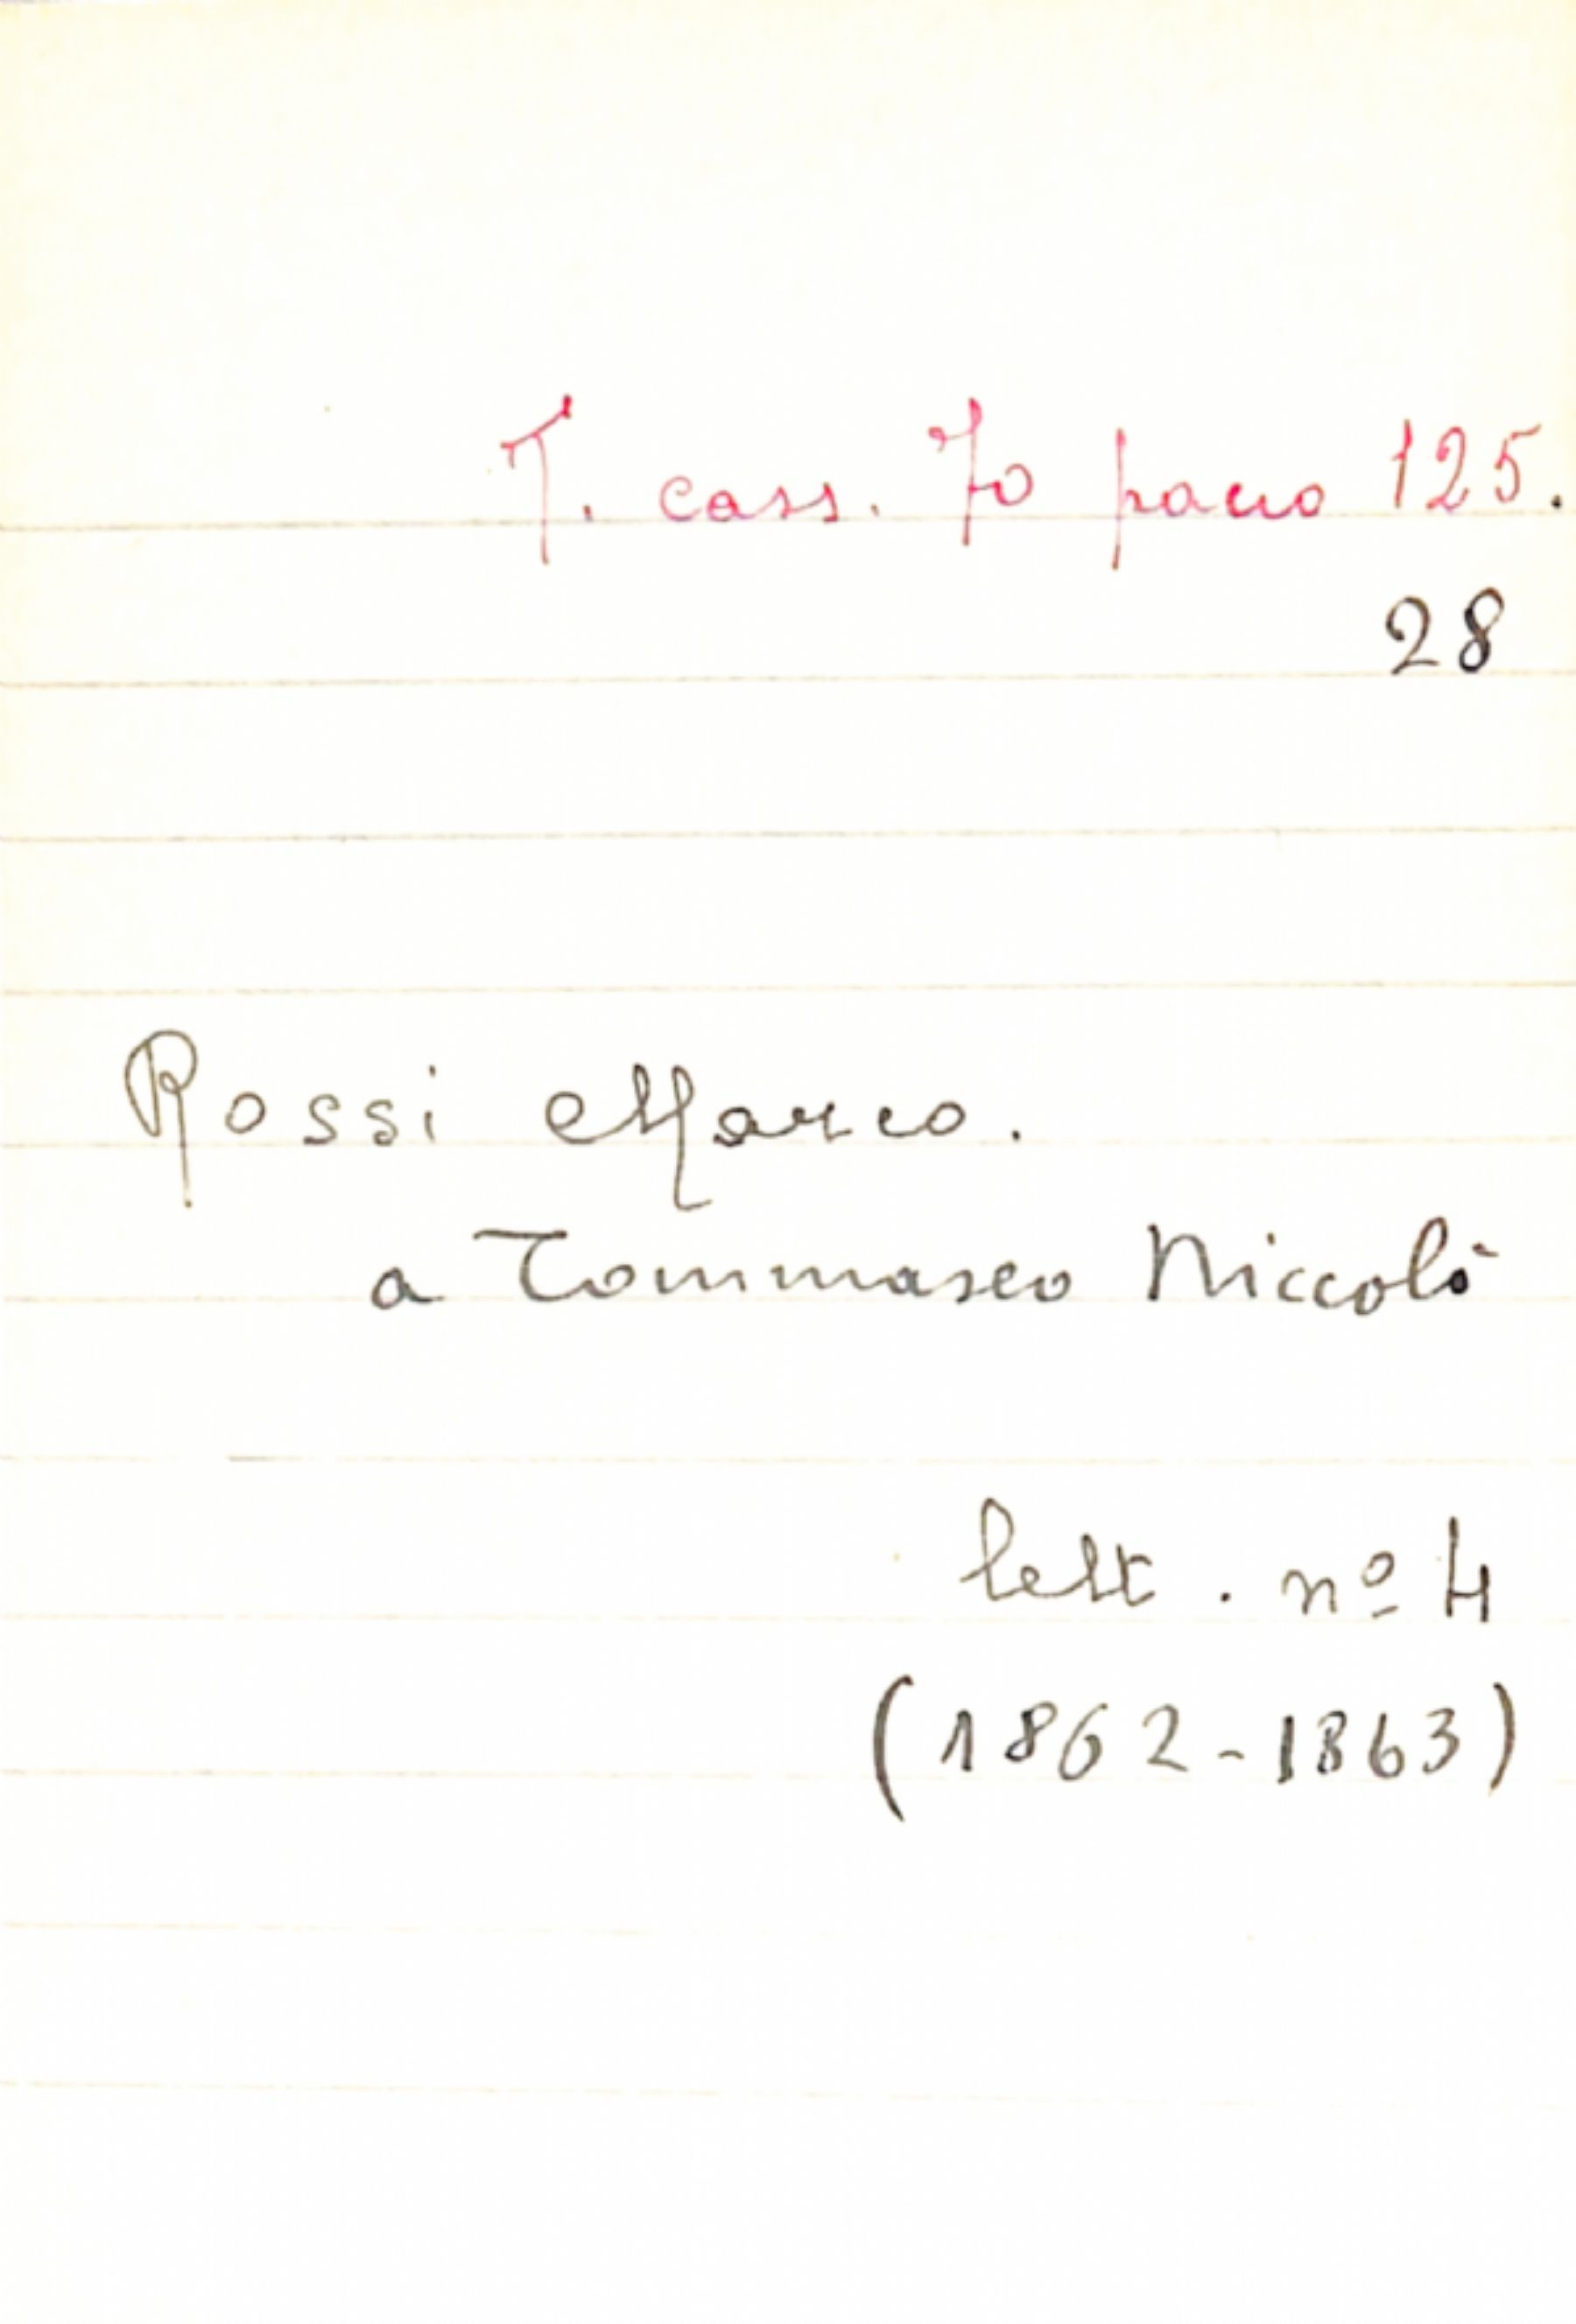 T. cass. 70 pacco 125.
28
Rossi Marco.
a Tommaseo Niccolò
lett. nº 4
(1862-1863)